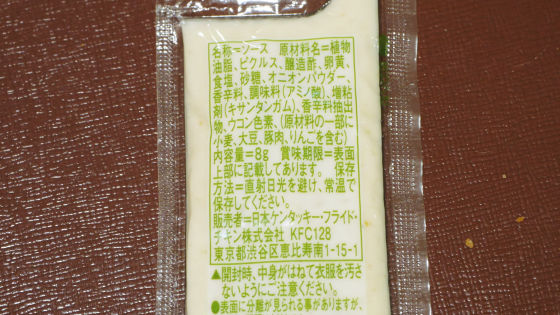 名称=ソース 原材料名=植物
油脂、ピクルス、醸造酢、卵黄、
食塩、砂糖、オニオンパウダー、
香辛料、調味料(アミノ酸)、増粘
剤(キサンタンガム)、香辛料抽出
物、ウコン色素、(原材料の一部に
小麦、大豆、豚肉、りんごを含む)
内容量=8g 賞味期限=表面
上部に記載してあります。 保存
方法=直射日光を避け、常温で
保存してください。
販売者=日本ケンタッキー・フライド・
チキン株式会社 KFC128
東京都渋谷区恵比寿南1-15-1
▲開封時、中身がはねて衣服を汚さ
ないようにご注意ください。
●表面に分離が見られる事がありますが、